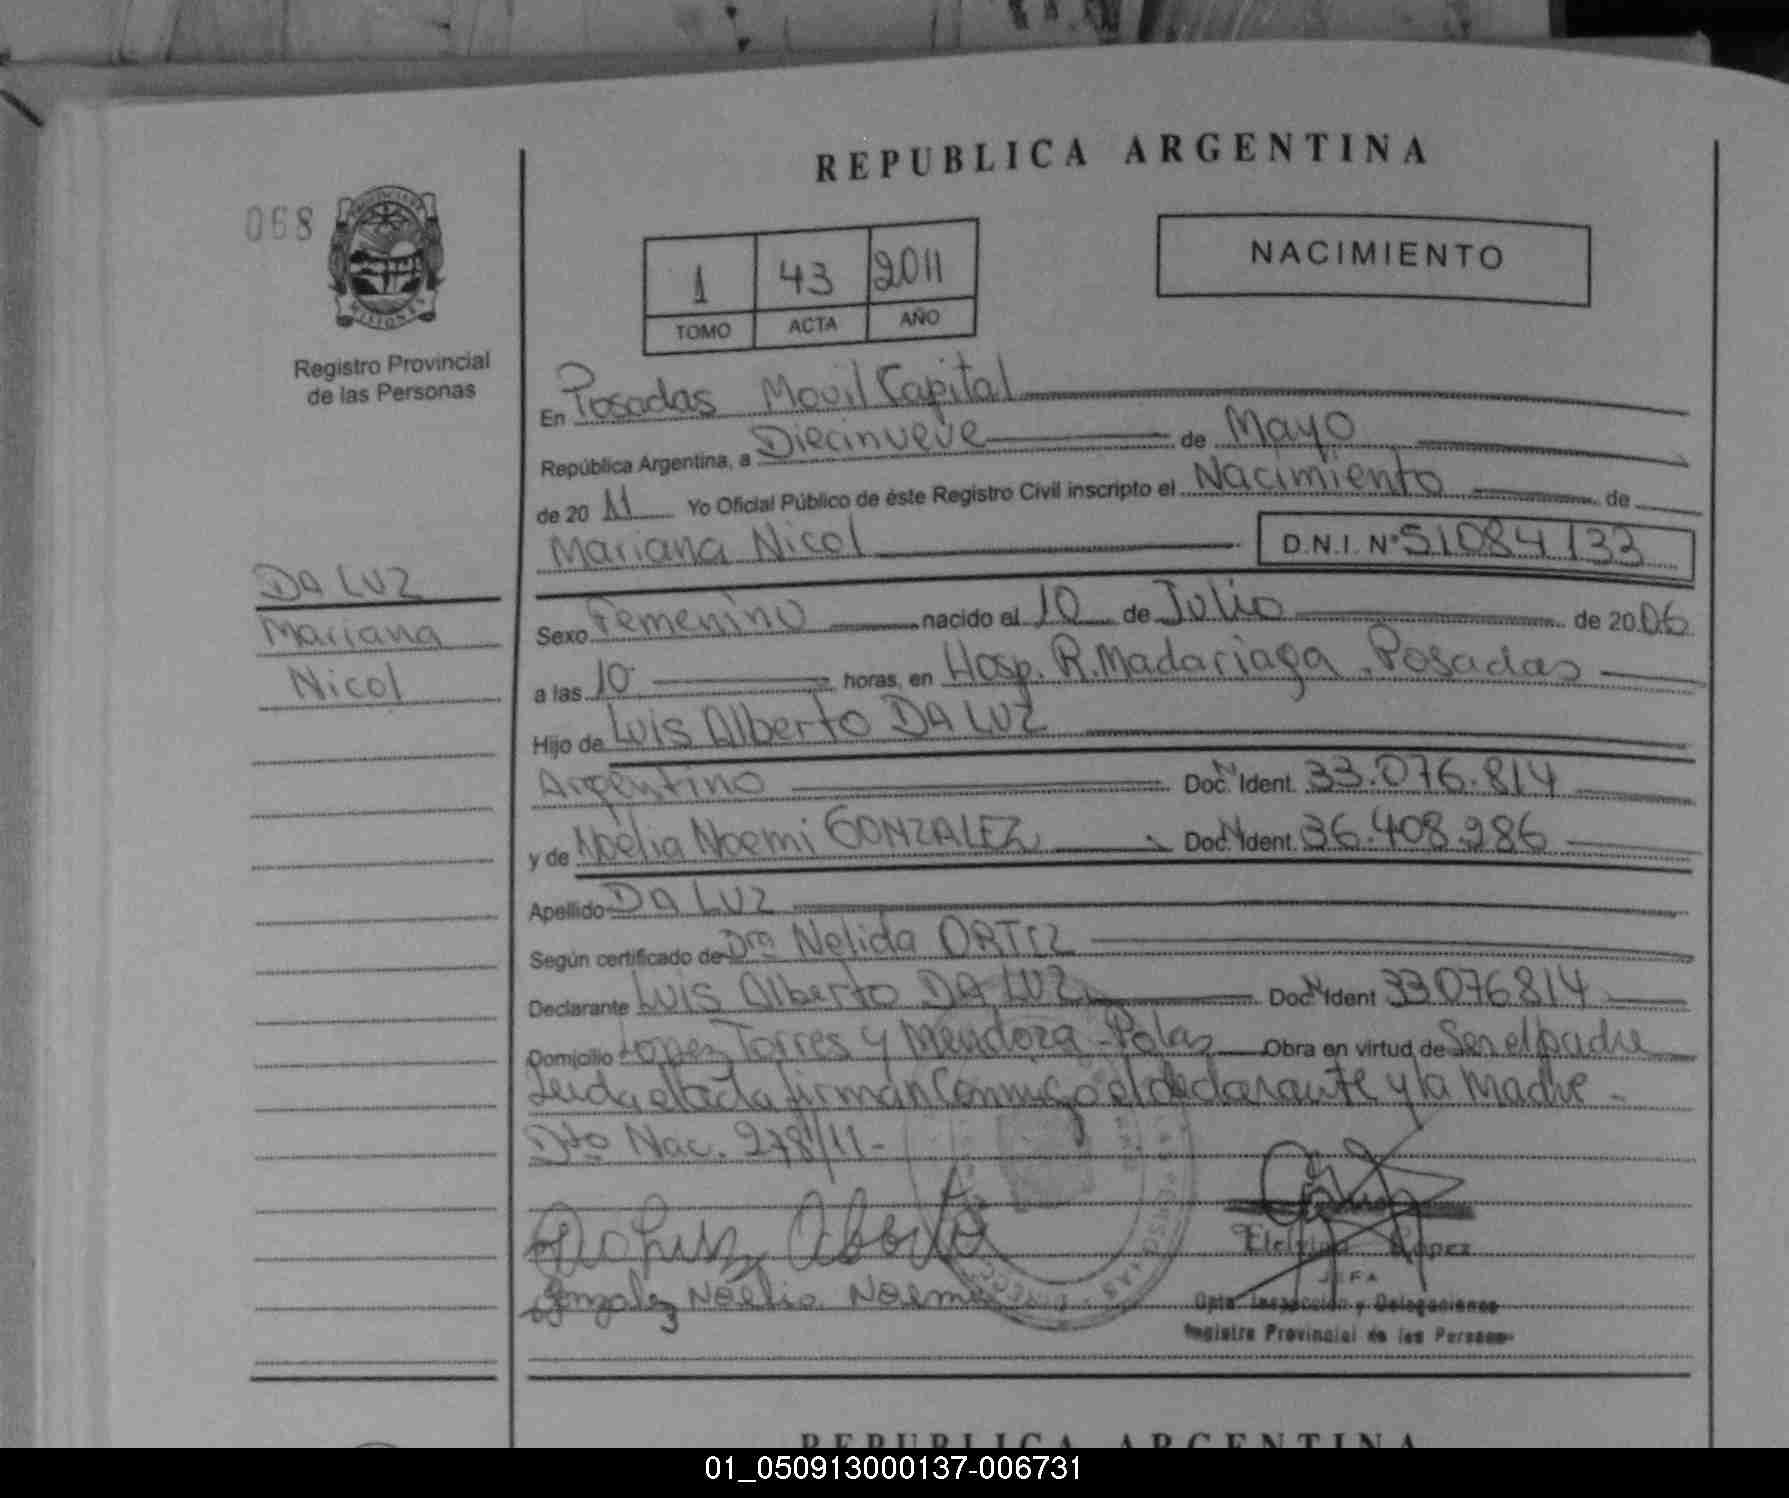 REPUBLICA ARGENTINA
068
NACIMIENTO
1 43 2011
TOMO ACTA AÑO
Registro Provincial
de las Personas
En Posadas Movil Capital
República Argentina, a Diecinueve de Mayo
de 20 11 Yo Oficial Público de éste Registro Civil inscripto el Nacimiento de
Mariana Nicol D.N.I. Nº 51084133
DA LUZ
Mariana
Nicol
Sexo Femenino nacido el 10 de Julio de 2006
a las 10 horas, en Hosp. R. Madariaga. Posadas
Hijo de Luis Alberto DA LUZ
Argentino Doc. N Ident. 33.076.814
y de Noelia Noemi GONZALEZ Doc. N Ident. 36.408.286
Apellido DA LUZ
Según certificado de Dra Nelida ORTIZ
Declarante Luis Alberto DA LUZ Doc. N Ident 33076814
Domicilio Lopez Torres y Mendoza - Pdas Obra en virtud de Ser el padre
Leida el acta firman conmigo el declarante y la Madre -
Dto Nac. 278/11-
Da Luz Alberto
Gonzalez Noelia Noemi
Lopez
JEFA
Dpto Inspección y Delegaciones
Registro Provincial de las Personas
REPUBLICA ARGENTINA
01_050913000137-006731